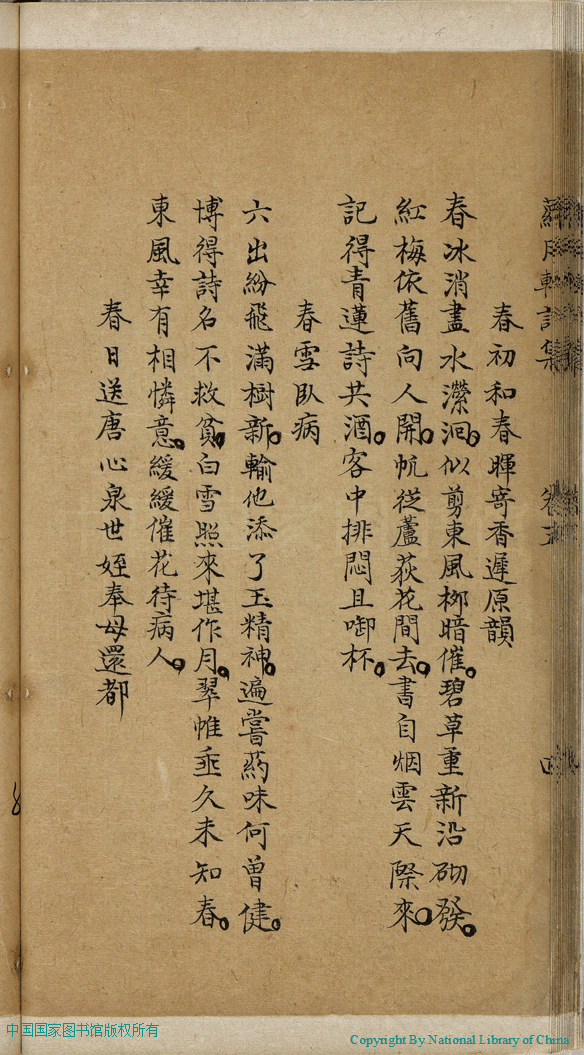 春初和春暉寄香遲原韻
春冰消盡水瀠洄。似剪東風柳暗催。碧草重新沿砌發。
紅梅依舊向人開。帆從蘆荻花間去。書自烟雲天際來。
記得青蓮詩共酒。客中排悶且啣杯。
春雪臥病
六出紛飛滿樹新。輸他添了玉精神。遍嘗葯味何曾健。
博得詩名不救貧。白雪照來堪作月。翠帷垂久未知春。
東風幸有相憐意。緩緩催花待病人。
春日送唐心泉世姪奉母還都
中国国家图书馆版权所有
Copyright By National Library of China